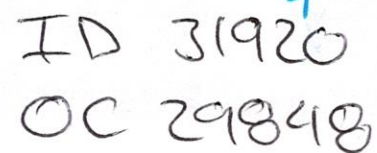 ID 31920
OC 29848